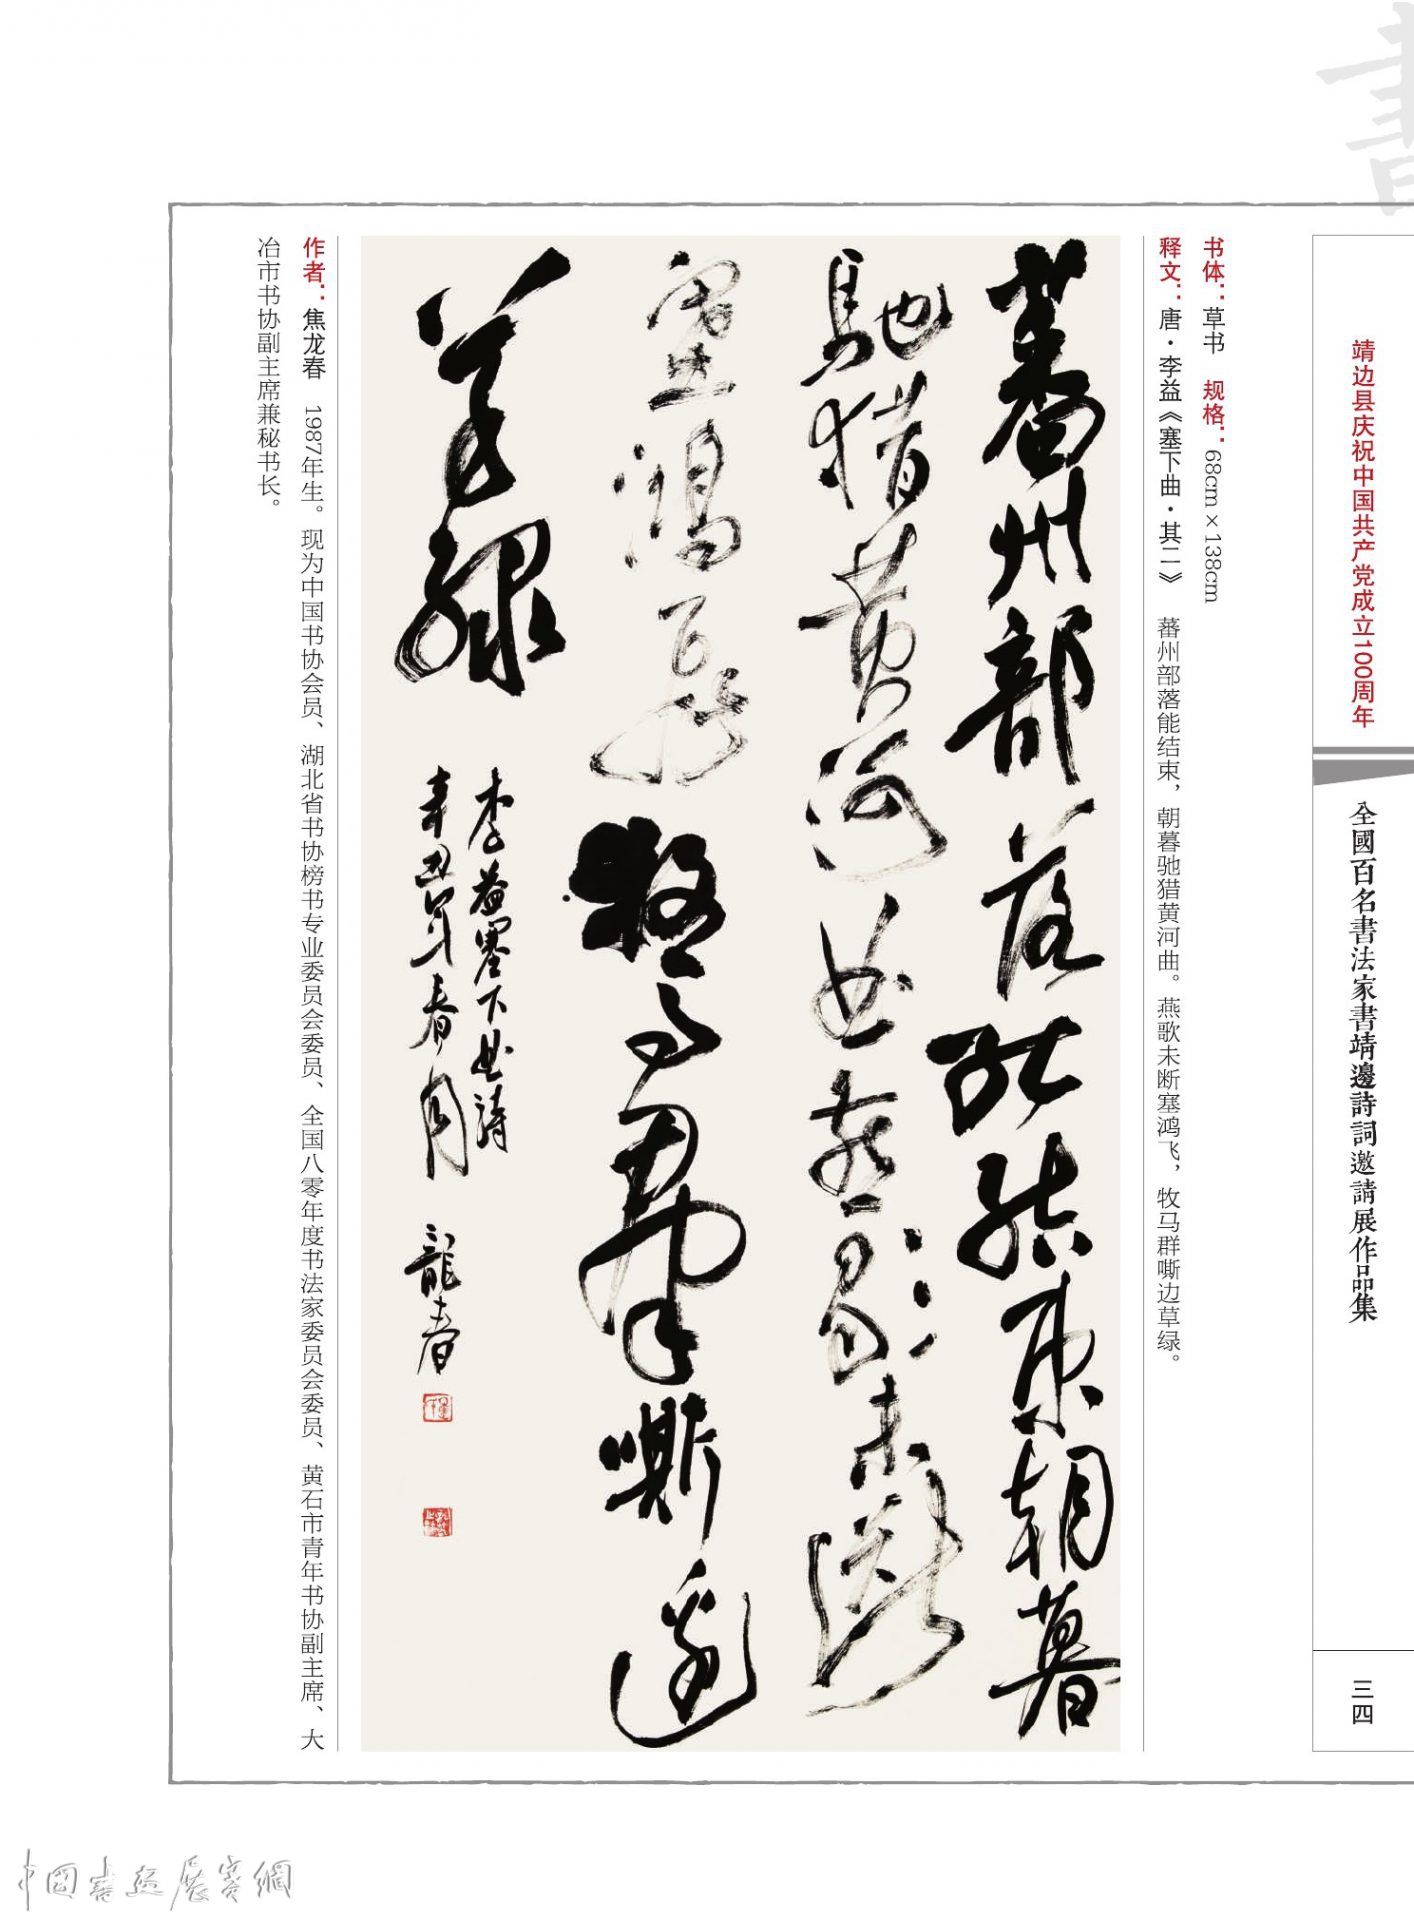 書
靖边县庆祝中国共产党成立100周年
全國百名書法家書靖邊詩詞邀請展作品集
三四
书体：草书　规格：68cm×138cm
释文：唐·李益《塞下曲·其二》　蕃州部落能结束，朝暮驰猎黄河曲。燕歌未断塞鸿飞，牧马群嘶边草绿。
蕃州部落能结束朝暮
馳猎黄河曲燕歌未断
塞鴻飛牧馬群嘶邊
草绿
李益塞下曲诗
辛丑年春月　龍春
作者：焦龙春　1987年生。现为中国书协会员、湖北省书协榜书专业委员会委员、全国八零年度书法家委员会委员、黄石市青年书协副主席、大
冶市书协副主席兼秘书长。
中國書畫展賽網